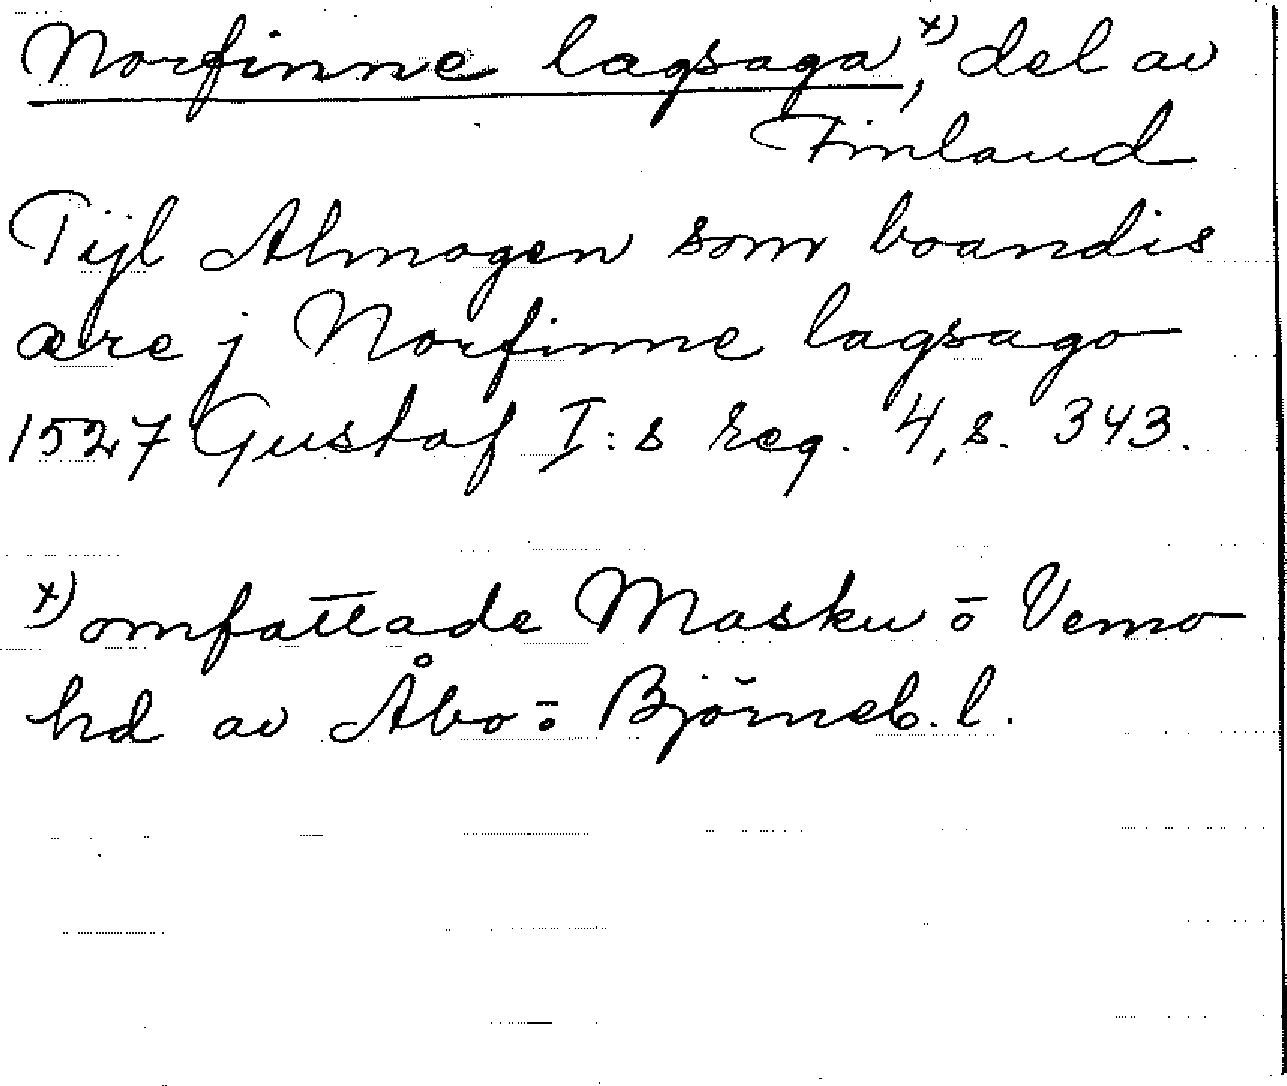 Norfinne lagsaga,ˣ⁾ del av
Finland
Tijl Almogen som boandis
ære j Norfinne lagsago
1527 Gustaf I:s reg. 4, s. 343.
ˣ⁾ omfattade Masku o Vemo
hd av Åbo o Björneb. l.